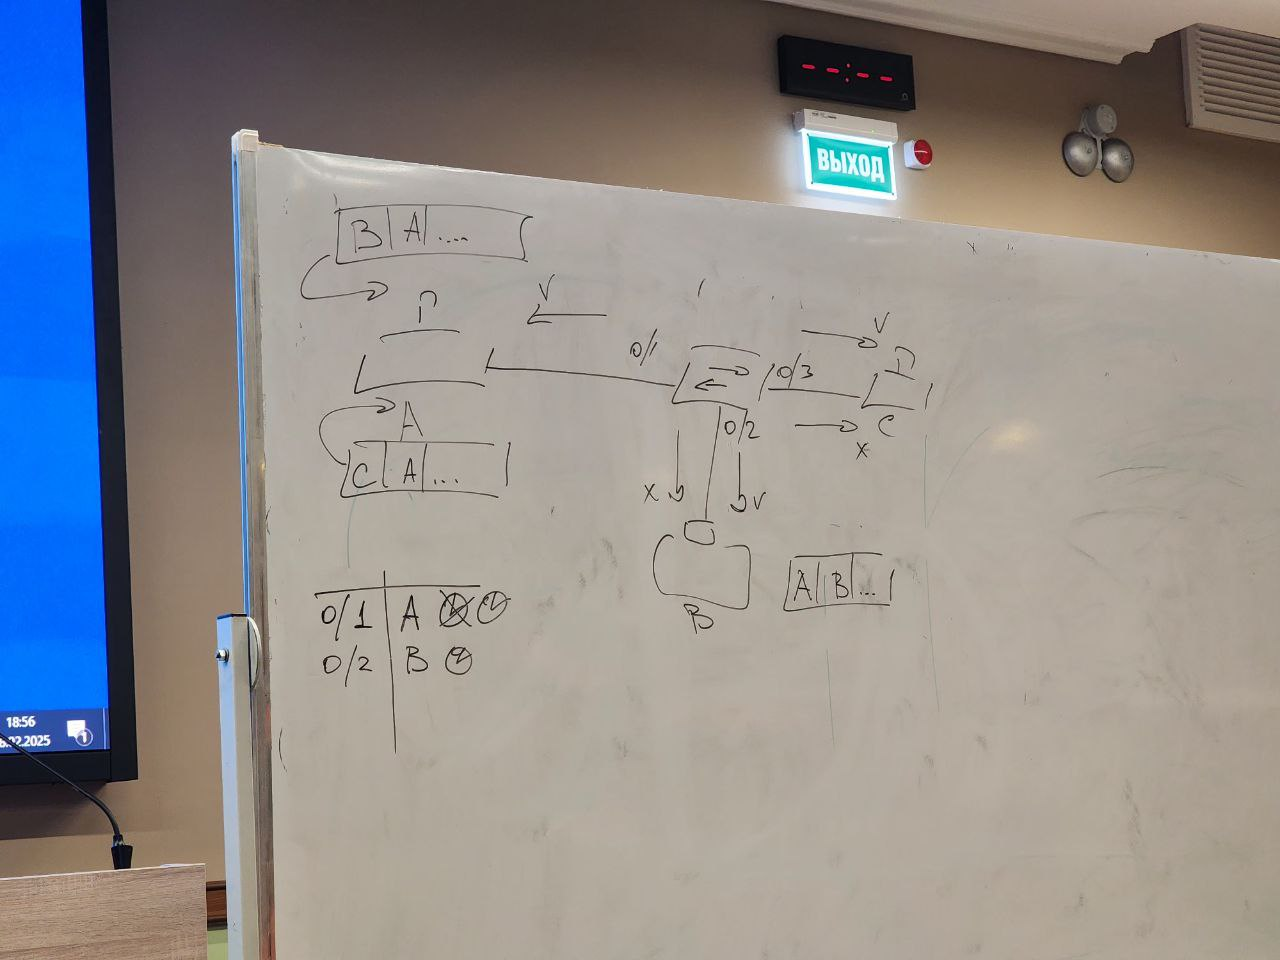 ВЫХОД
B A ....
V
V
0/1
0/3
A
C
0/2
x
C A ...
x
V
B
A B ...
0/1 A
0/2 B
18:56
.02.2025
1